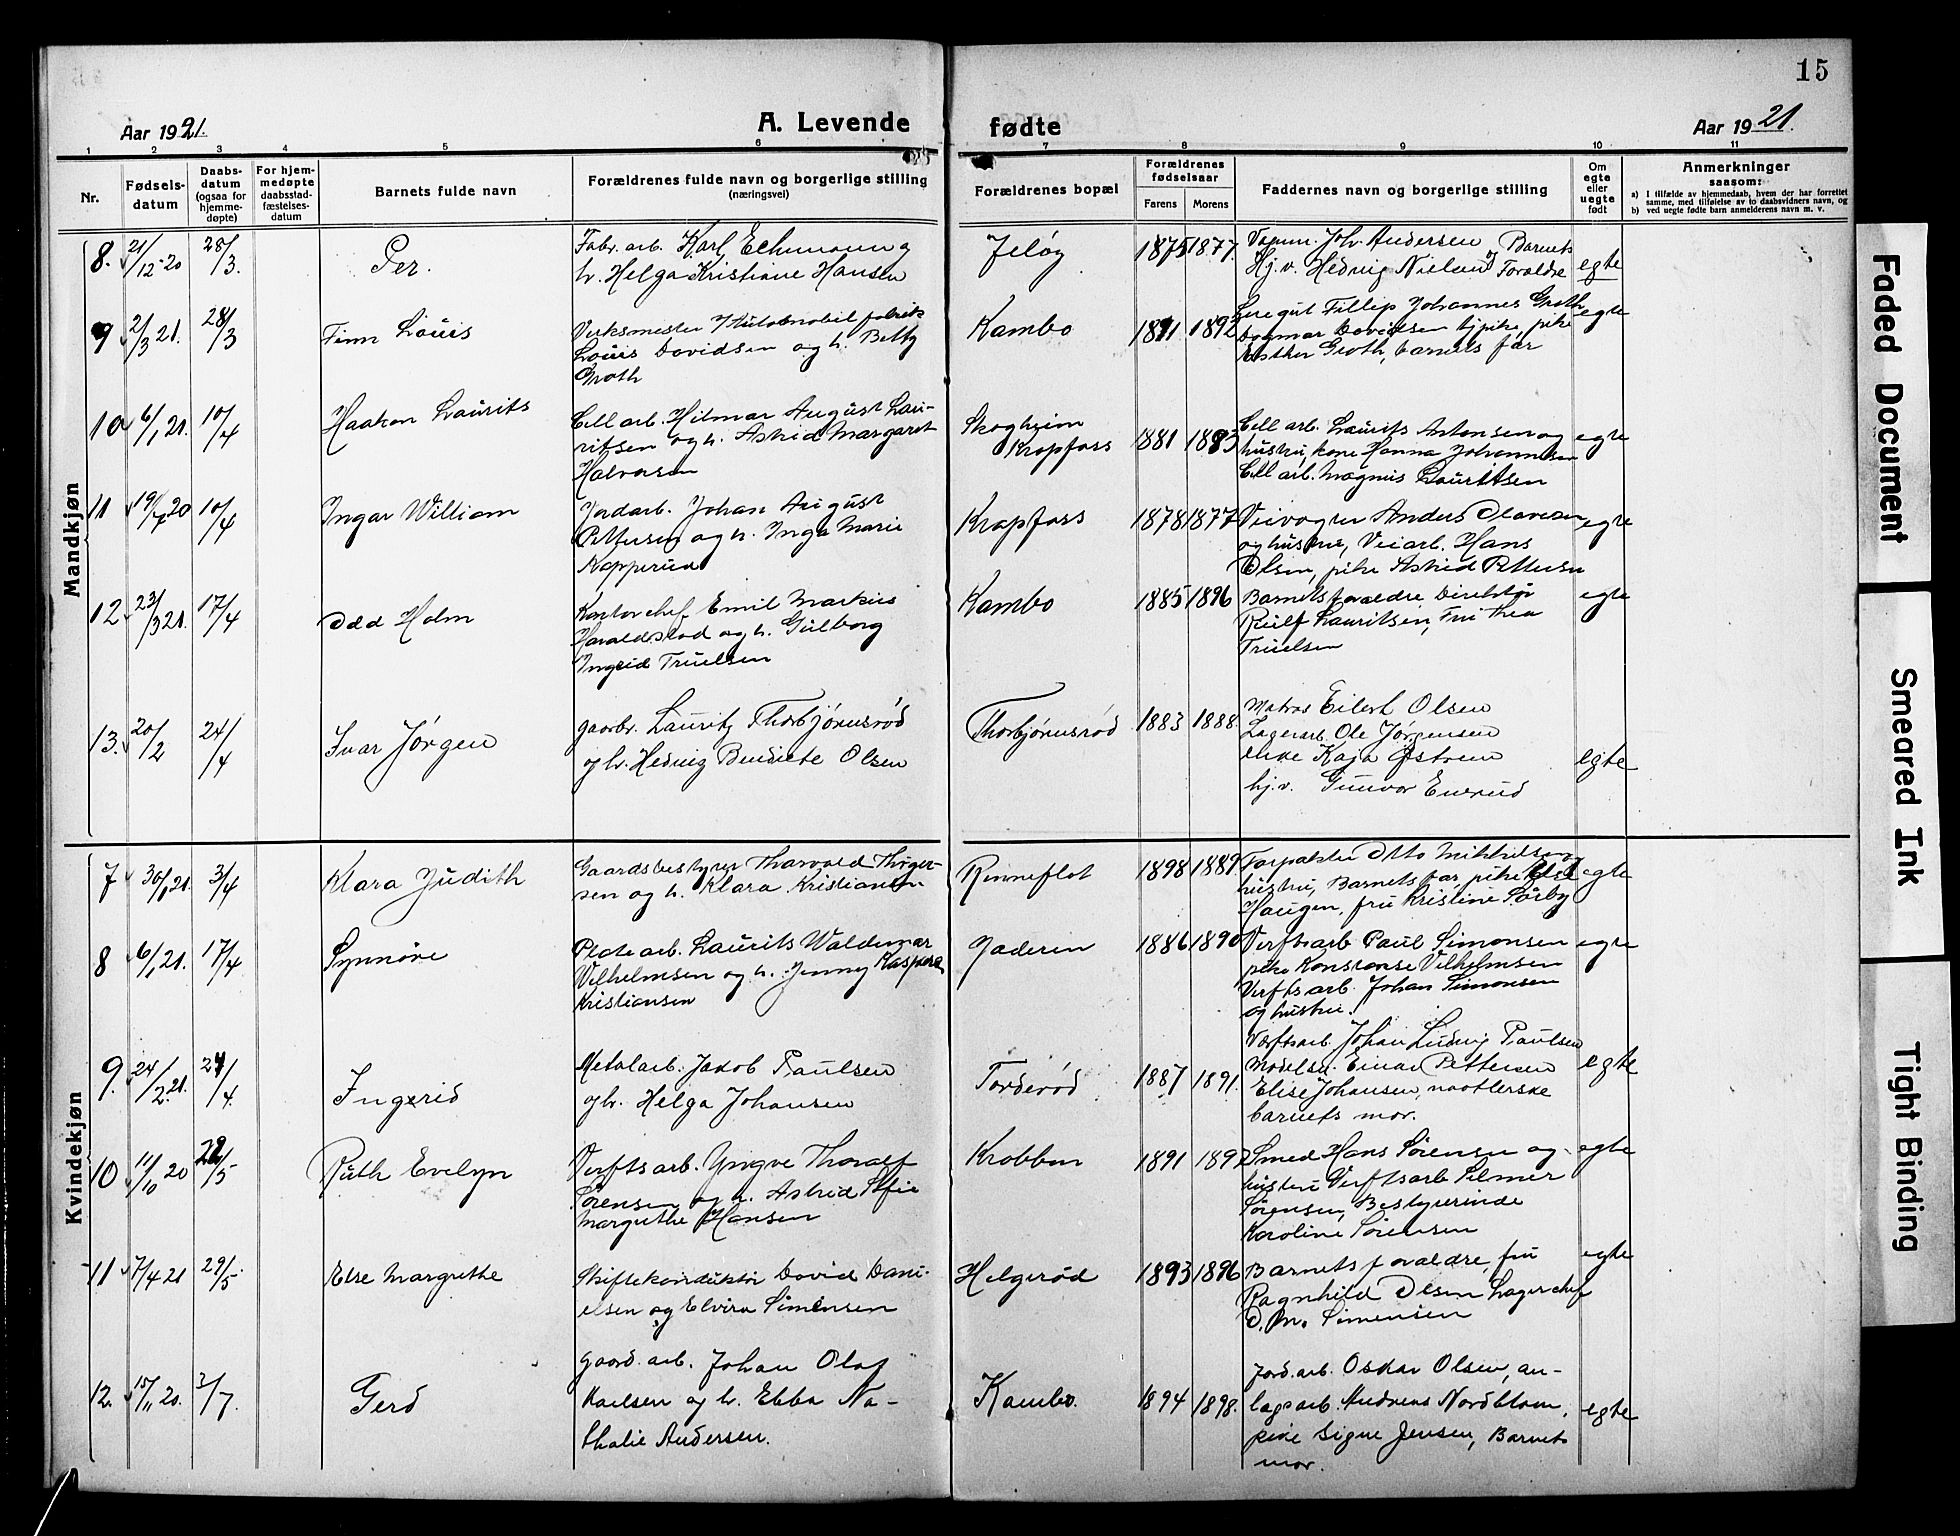 15
Aar 1921.
A. Levende fødte
Aar 1921.
1 2 3 4 5 6 7 8 9 10 11
Nr.
Fødsels-
datum
Daabs-
datum
(ogsaa for
hjemme-
døpte)
For hjem-
medøpte
daabsstad-
fæstelses-
datum
Barnets fulde navn
Forældrenes fulde navn og borgerlige stilling
(næringsvei)
Forældrenes bopæl
Forældrenes
fødselsaar
Farens Morens
Faddernes navn og borgerlige stilling
Om
egte
eller
uegte
født
Anmerkninger
saasom:
a) I tilfælde av hjemmedaab, hvem der har forrettet
samme, med tilføielse av to daabsvidners navn, og
b) ved uegte fødte barn anmelderens navn m. v.
Mandkjøn
8. 21/12-20 28/3. Per.
Fabr. arb. Karl Echmann og
h. Helga Kristiane Hansen
Jeløy 1875 1877.
Joh. Andersen Barnets
Hj.v. Hedvig Nielsen og Forældre egte
9 2/3 21. 28/3 Finn Louis
Verksmester i Automobilfabrik
Louis Davidsen og h. Betty
Groth
Kambo 1891 1892
Fillip Johannes Groth egte
Dagmar Davidsen pike
Esther Groth, barnets far
10 6/1 21. 10/4 Haakon Laurits
Cell arb. Hilmar August Lau-
ritsen og h. Astrid Margaret
Halvorsen
Skogheim
Krapfoss 1881 1883
Cell arb. Laurits Antonsen og egte
hustru, kone Hanna Johannesen
Cell arb. Magnus Lauritsen
11 19/7 20 10/4 Ingar William
Jordarb. Johan August
Pettersen og h. Inga Marie
Kopperud
Krapfoss 1878 1877
Veivogter Anders Olavesen egte
og hustru, Veiarb. Hans
Olsen, pike Astrid Pettersen
12 23/3 21. 17/4 Odd Holm
Kontorchef Emil Markus
Haraldstad og h. Gulborg
Ingrid Truelsen
Kambo 1885 1896
Barnets forældre Direktør egte
Rulf Lauritsen, Fru Thea
Truelsen
13. 20/2 24/4 Ivar Jörgen
gaarbr. Lauritz Thorbjörnsröd
og h. Hedvig Bendicte Olsen
Thorbjörnsröd 1883 1888.
Matros Eilert Olsen
Lagerarb. Ole Jörgensen
enke Kaja Østrem egte
hj.v. Gunvor Enerud
Kvindekjøn
7 30/1 21. 3/4 Klara Judith
Gaardsbestyrer Thorvald Thøger-
sen og h. Klara Kristiansen
Rinneflot 1898 1889
Forpakter Otto Mikkelsen og
hustru, Barnets far pike Else egte
Haugen, fru Kristine Sørby
8 6/1 21. 17/4 Synnøve
Plate arb. Laurits Waldemar
Vilhelmsen og h. Jenny Kaspara
Kristiansen
Naderin 1886 1890
Verftsarb Paul Simonsen egte
pike Konstanse Vilhelmsen
Verftsarb. Johan Simonsen
og hustru.
9. 24/2 21. 24/4. Ingerid
Metalarb. Jakob Paulsen
og h. Helga Johansen
Torderöd 1887 1891.
Verftsarb. Johan Ludvig Paulsen
Modelsn. Einar Pettersen egte
Elise Johansen,
barnets mor.
10 11/10 20 22/5 Ruth Evelyn
Verftsarb. Yngve Thoralf
Sørensen og h. Astrid Sofie
Margrethe Hansen
Krobben 1891 1892
Smed Hans Sørensen og egte
hustru Verftsarb Hilmer
Sørensen, Bestyrerinde
Karoline Sørensen
11 7/4 21 29/5. Else Margrethe
Skiftekonduktør David Dani-
elsen og Elvira Simensen
Helgerød 1893 1896
Barnets forældre, fru egte
Ragnhild Olsen Lagerchef
O. M. Simensen
12. 15/11 20. 3/7. Gerd
Gaard. arb. Johan Olaf
Karlsen og h. Ebba Na-
thalie Andersen.
Kambo. 1894 1898.
Jord.arb. Oskar Olsen, an-
lagsarb. Andreas Nordblom, egte
pike Signe Jensen, Barnets
mor.
Faded Document
Smeared Ink
Tight Binding